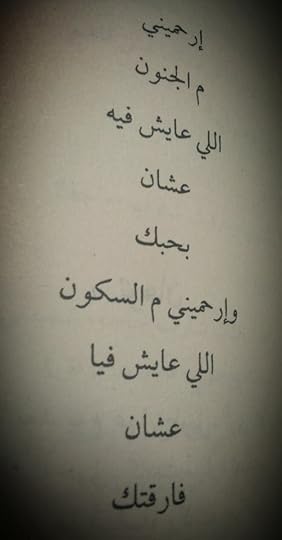 إرحميني
م الجنون
اللي عايش فيه
عشان
بحبك
وإرحميني م السكون
اللي عايش فيا
عشان
فارقتك